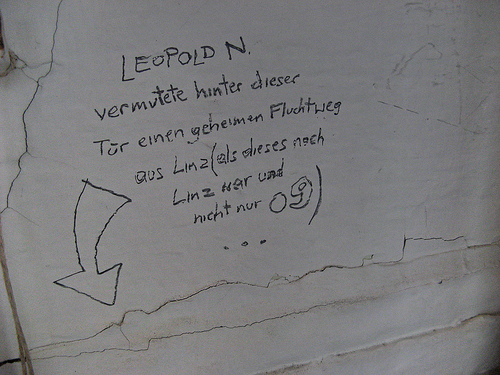 LEOPOLD N.
vermutete hinter dieser
Tür einen geheimen Fluchtweg
aus Linz (als dieses noch
Linz war und
nicht nur 09)
...